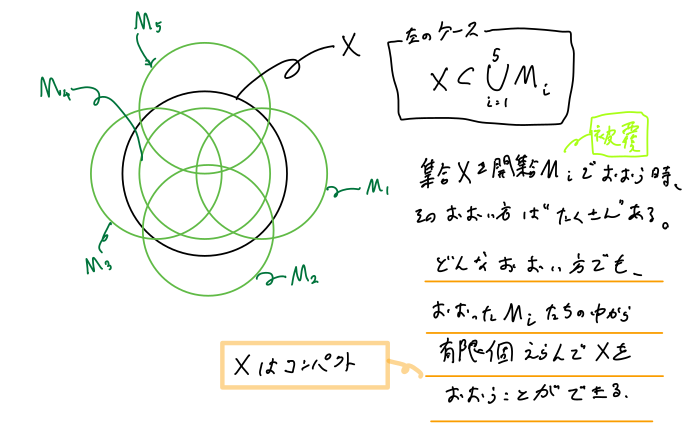 M₅
X
M₄
M₁
M₃
M₂
左のケース
X ⊂ ⋃_{i=1}^{5} M_i
被覆
集合Xを開集合M_iでおおう時、
そのおおい方はたくさんある。
どんなおおい方でも、
おおったM_iたちの中から
有限個えらんでXを
おおうことができる.
Xはコンパクト